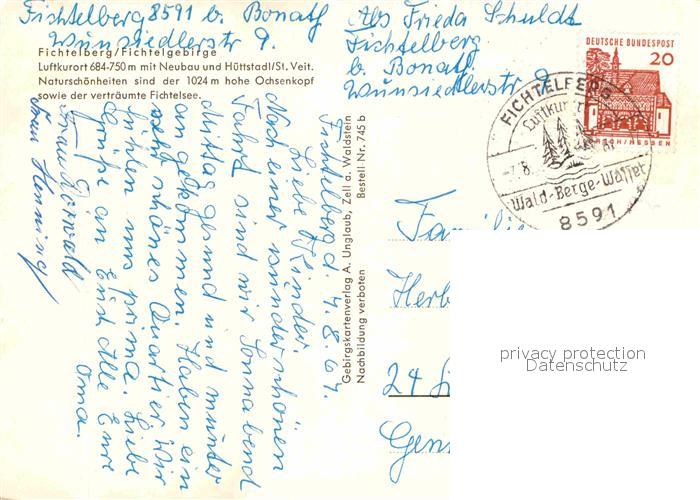 Fichtelberg 8591 b. Bonath
Wunsiedlerstr 9.
Fichtelberg/Fichtelgebirge
Luftkurort 684-750 m mit Neubau und Hüttstadl/St. Veit.
Naturschönheiten sind der 1024 m hohe Ochsenkopf
sowie der verträumte Fichtelsee.
Abs Frieda Schuldt
Fichtelberg
b. Bonath
Wunsiedlerstr 9
DEUTSCHE BUNDESPOST
20
LORSCH/HESSEN
FICHTELBERG
Luftkurort
-7.8.
Wald-Berge-Wasser
8591
Fichtelberg d 4.8.67.
Liebe Kinder.
Nach einer wunderschönen
Fahrt sind wir Sonnabend
Mittag gesund und munter
angekommen. Haben ein
sehr schönes Quartier. Wir
fühlen uns prima. Liebe
Grüße an Euch Alle Eure
Oma.
Frau
Frau Henning
Gebirgskartenverlag A. Unglaub, Zell a. Waldstein
Nachbildung verboten Bestell-Nr. 745 b
Familie
Herb
24
Gen
privacy protection
Datenschutz